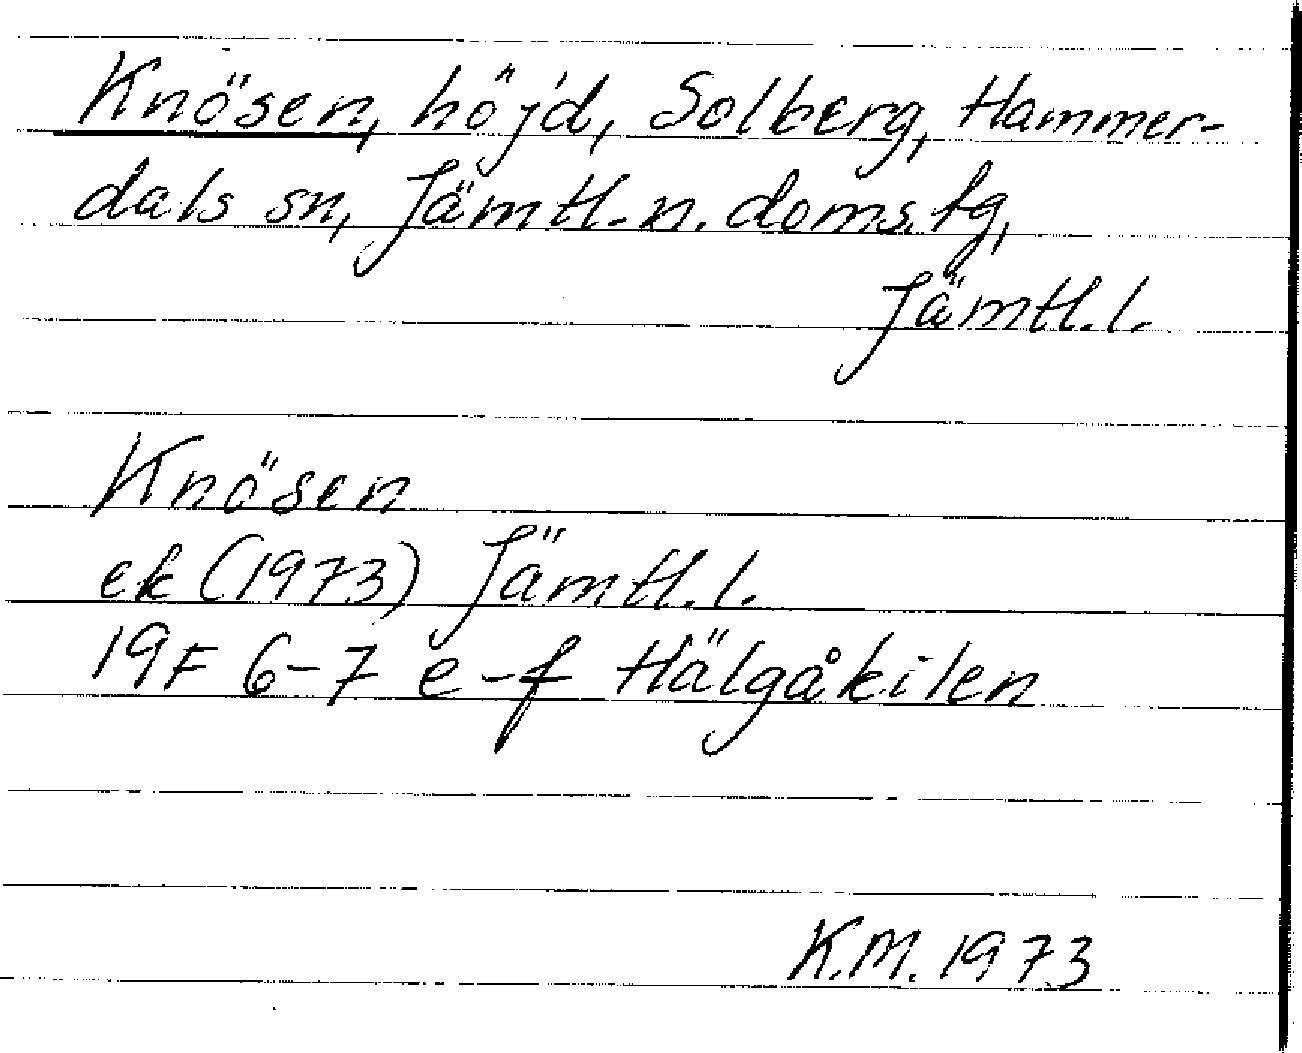 Knösen, höjd, Solberg, Hammer-
dals sn, Jämtl. n. doms. tg,
Jämtl. l.
Knösen
ek (1973) Jämtl. l.
19F 6-7 e-f Hälgåkilen
K.M. 1973